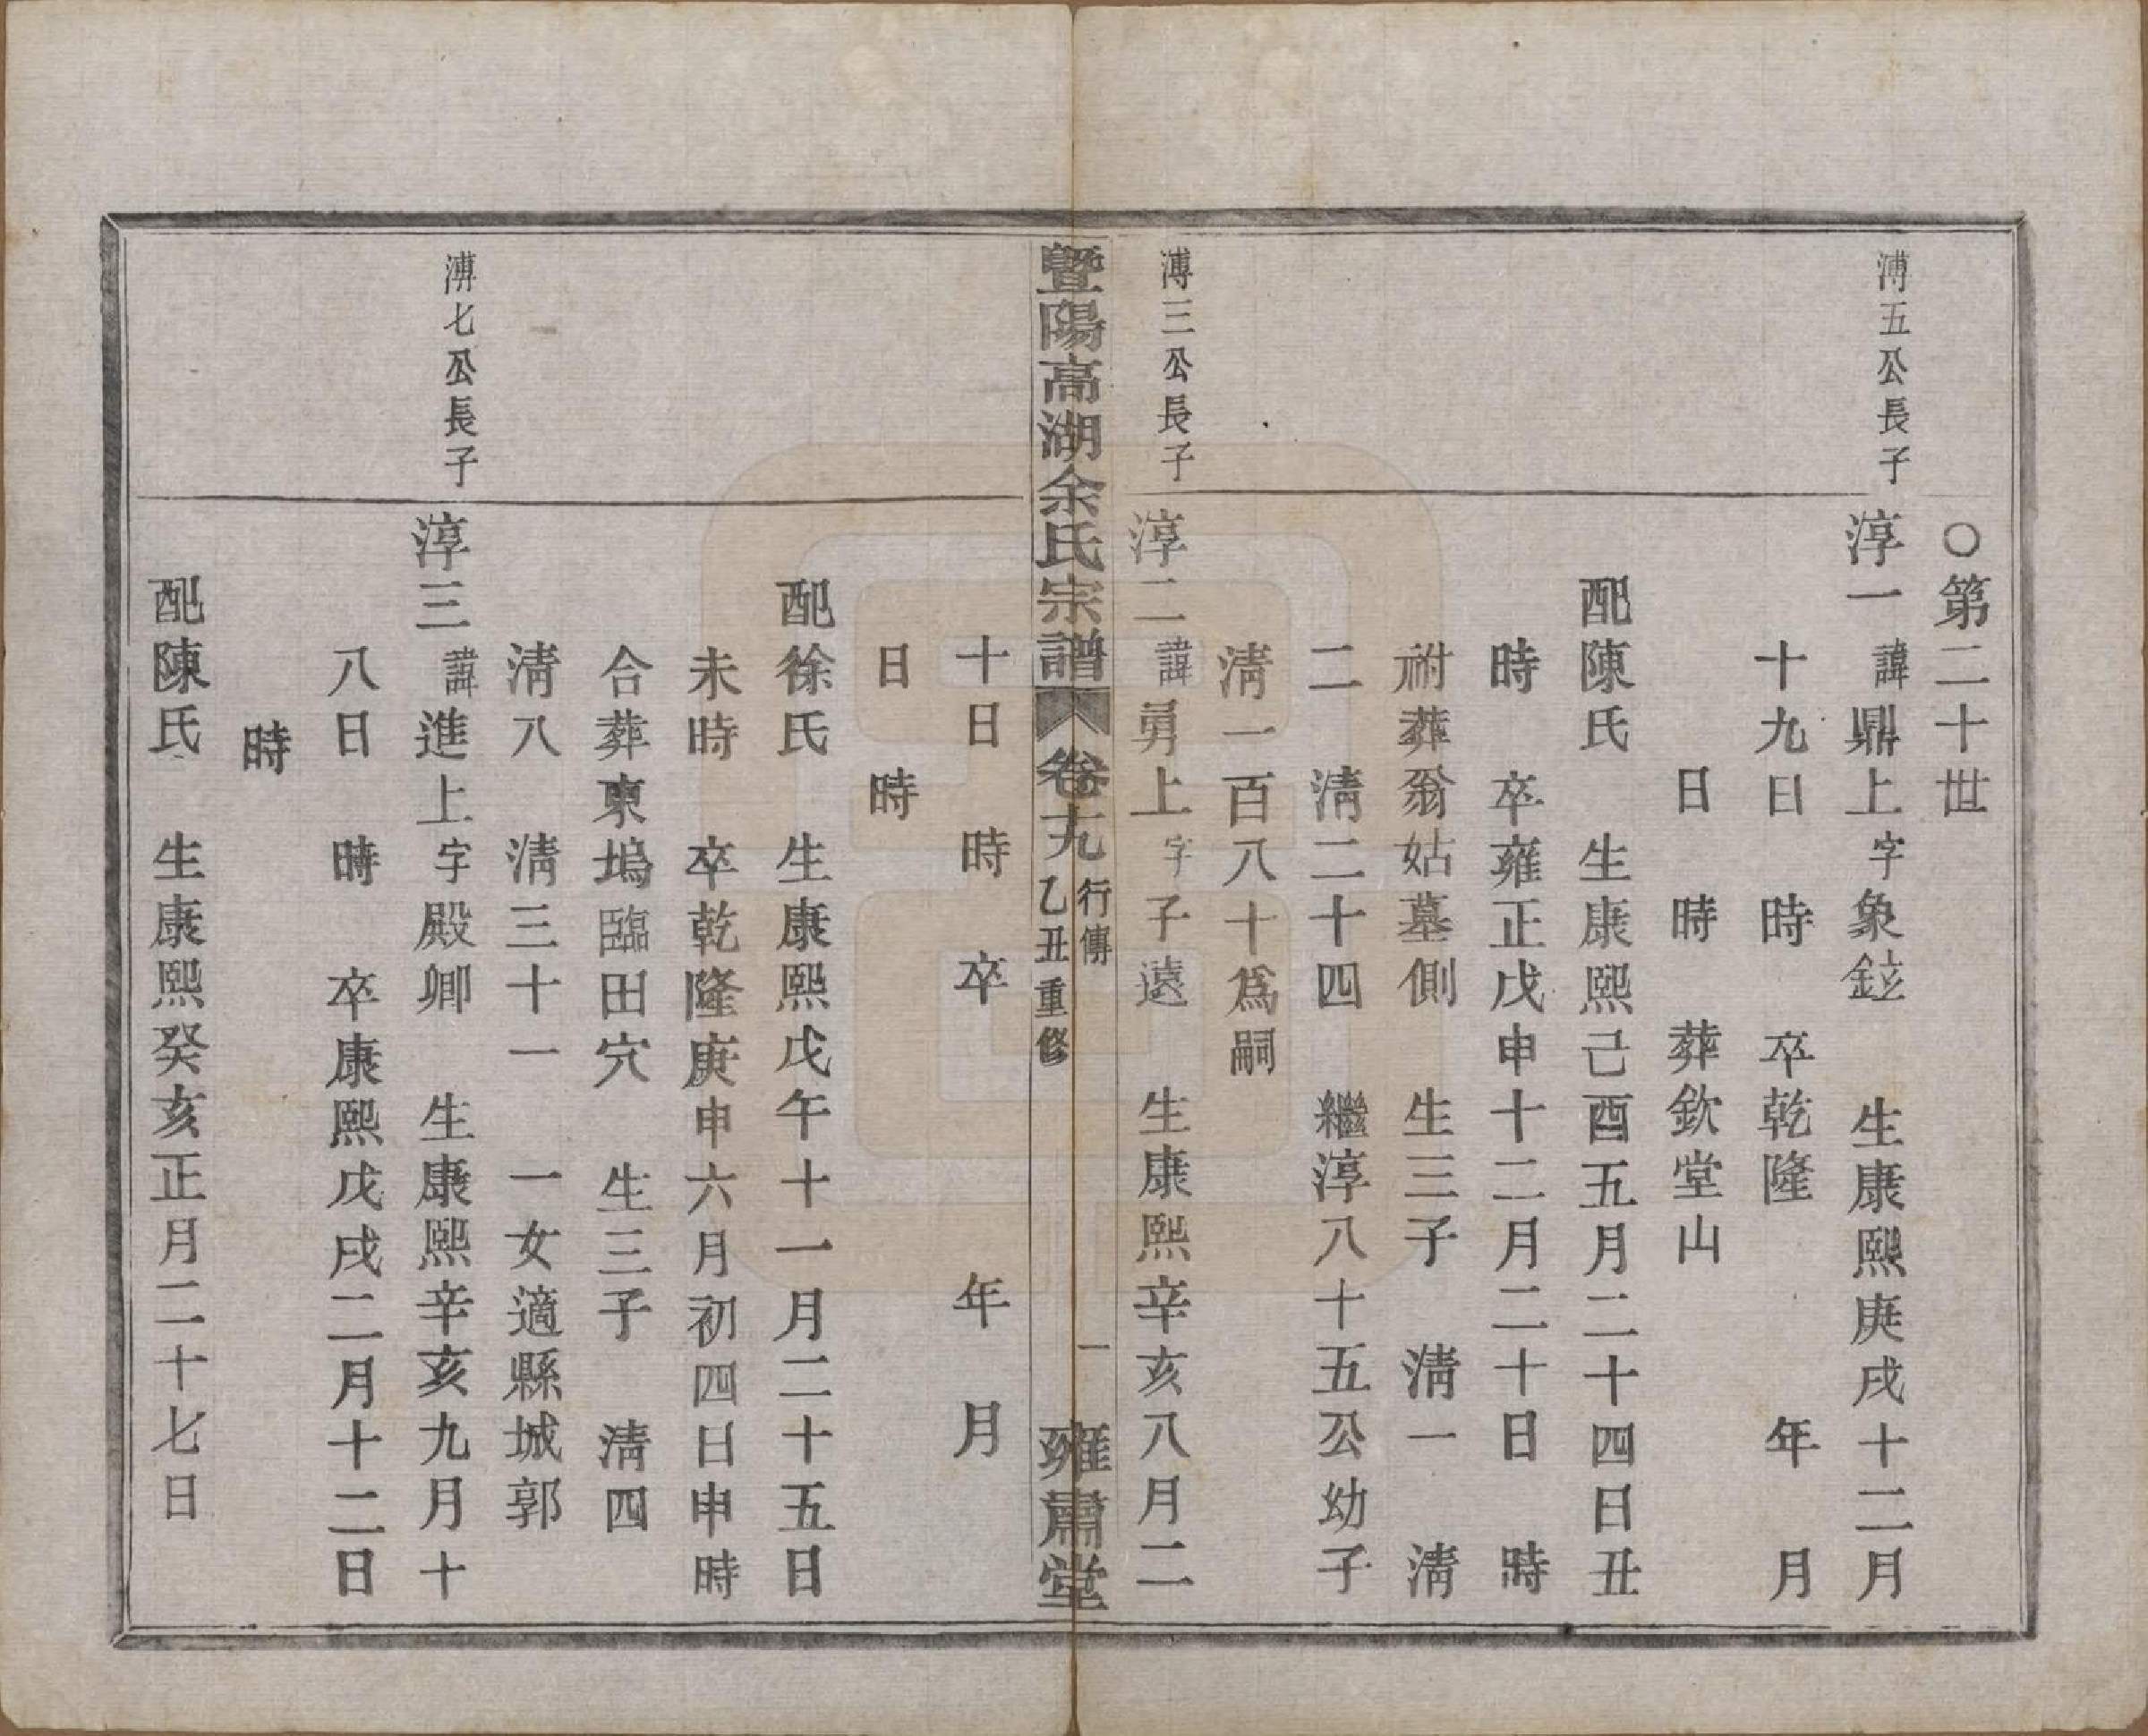 ○第二十世
溥五公長子
淳一諱鼎上字象鉉　生康熙庚戌十二月
十九日　時　卒乾隆　　年　月
日　時　葬欽堂山
配陳氏　生康熙己酉五月二十四日丑
時　卒雍正戊申十二月二十日　時
祔葬翁姑墓側　生三子　清一　清
二　清二十四　繼淳八十五公幼子
清一百八十為嗣
溥三公長子
淳二諱勇上字子遠　生康熙辛亥八月二
暨陽高湖余氏宗譜　卷十九　行傳　乙丑重修　一　雍肅堂
十日　時　卒　　年　月
日　時
配徐氏　生康熙戊午十一月二十五日
未時　卒乾隆庚申六月初四日申時
合葬東塢臨田穴　生三子　清四
清八　清三十一　一女適縣城郭
溥七公長子
淳三諱進上字殿卿　生康熙辛亥九月十
八日　時　卒康熙戊戌二月十二日
時
配陳氏　生康熙癸亥正月二十七日